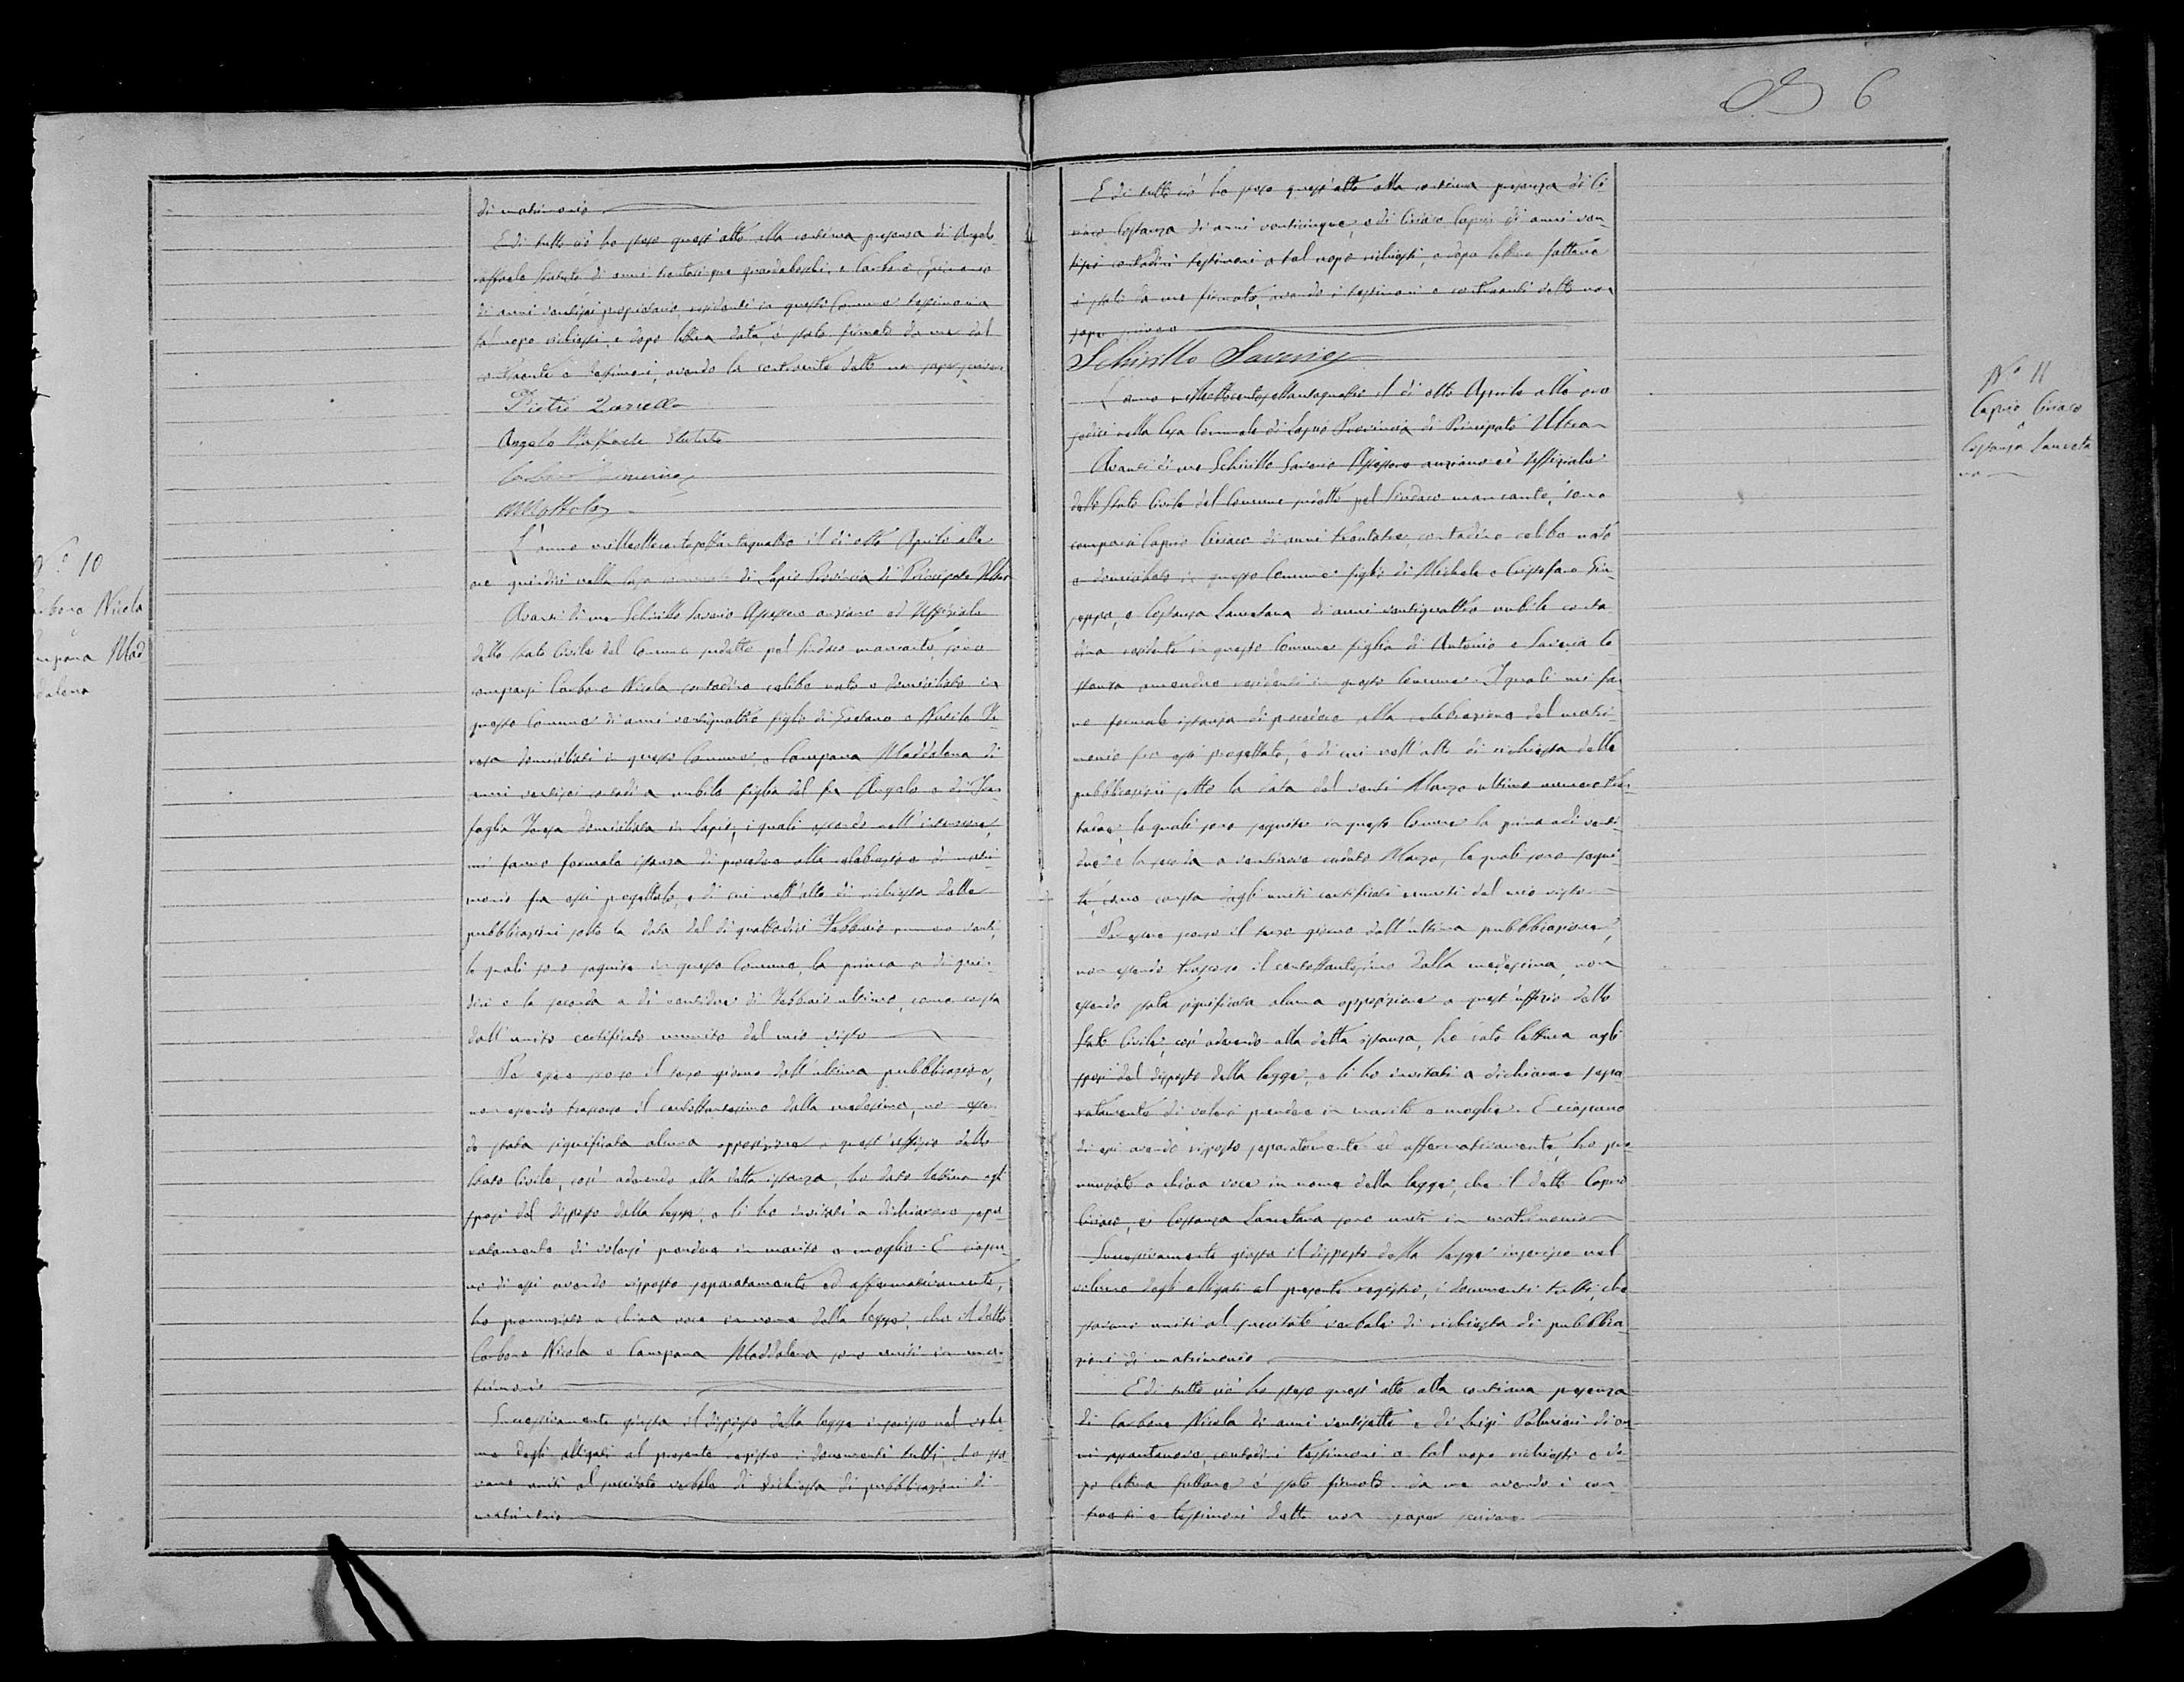 6
di matrimonio
E di tutto ciò ho steso quest'atto alla continua presenza di Angelo
raffaele Statuto di anni trentacinque guardaboschi, e Carbone
di anni ventisei proprietario, residenti in questo Comune testimoni a
tal uopo richiesti, e dopo lettura data, è stato firmato da me dal
contraente e testimoni, avendo la contraente detto non saper scrivere
Pietro Zarrella
Angelo Raffaele Statuto
Carbone
Mottola
N.o 10
rbone Nicola
e
mpana Mad
dalena
L'anno milleottocentosettantaquattro il dì otto Aprile alle
ore quindici nella Casa comunale di Lapio Provincia di Principato Ultra
Avanti di me Schirillo Saverio Assessore anziano ed Uffiziale
dello Stato Civile del Comune sudetto pel Sindaco mancante, sono
comparsi Carbone Nicola contadino celibe nato e domiciliato in
questo Comune di anni ventiquattro figlio di Gaetano e
domiciliati in questo Comune, e Campana Maddalena di
anni ventisei contadina nubile figlia del fu Angelo e di
Teresa domiciliata in Lapio, i quali essendo
mi fanno formale istanza di procedere alla celebrazione di matri-
monio fra essi progettato, e di cui nell'atto di richiesta delle
pubblicazioni sotto la data del dì quattordici Febbraio numero venti,
le quali sono seguite in questo Comune, la prima a dì quin-
dici e la seconda a dì ventidue di Febbraio ultimo, come costa
dall'unito certificato munito del mio visto
Per essere scorso il terzo giorno dall'ultima pubblicazione,
non essendo trascorso il centottantesimo dalla medesima, non essen-
do stata significata alcuna opposizione a quest'uffizio dello
Stato Civile, così aderendo alla detta istanza, ho dato lettura agli
sposi del disposto della legge, e li ho invitati a dichiarare sepa-
ratamente di volersi prendere in marito e moglie. E ciascu-
no di essi avendo risposto separatamente ed affermativamente,
ho pronunziato a chiara voce in nome della legge, che il detto
Carbone Nicola e Campana Maddalena sono uniti in ma-
trimonio
Successivamente giusta il disposto della legge inserisco nel volu-
me degli alligati al presente registro i documenti tutti, che sta-
vano uniti al succitato verbale di richiesta di pubblicazioni di
matrimonio
E di tutto ciò ho steso quest'atto alla continua presenza di Ci-
riaco Costanza di anni venticinque, e di Ciriaco Caprio di anni ven-
tisei contadini testimoni a tal uopo richiesti, e dopo lettura fattane
è stato da me firmato, avendo i testimoni e contraenti detto non
saper scrivere
Schirillo Saverio
N.o 11
Caprio Ciriaco
e
Costanza Laureta
na
L'anno milleottocentosettantaquattro il dì otto Aprile alle ore
sedici nella Casa Comunale di Lapio Provincia di Principato Ultra
Avanti di me Schirillo Saverio Assessore anziano ed Uffiziale
dello Stato Civile del Comune sudetto pel Sindaco mancante, sono
comparsi Caprio Ciriaco di anni trentatre, contadino celibe nato
e domiciliato in questo Comune figlio di Michele e Cristofano Giu-
seppa, e Costanza Lauretana di anni ventiquattro nubile conta
dina residente in questo Comune figlia di Antonio e Saveria Co
stanza amendue residenti in questo Comune. I quali mi fan-
no formale istanza di procedere alla celebrazione del matri-
monio fra essi progettato, e di cui nell'atto di richiesta delle
pubblicazioni sotto la data del venti Marzo ultimo numero tren-
tadue, le quali sono seguite in questo Comune la prima a dì venti-
due e la seconda a ventinove caduto Marzo, le quali sono segui-
te, come costa dagli uniti certificati muniti del mio visto
Per essere scorso il terzo giorno dall'ultima pubblicazione,
non essendo trascorso il centottantesimo dalla medesima, non
essendo stata significata alcuna opposizione a quest'uffizio dello
Stato Civile, così aderendo alla detta istanza, ho dato lettura agli
sposi del disposto della legge, e li ho invitati a dichiarare sepa
ratamente di volersi prendere in marito e moglie. E ciascuno
di essi avendo risposto separatamente ed affermativamente, ho pro-
nunziato a chiara voce in nome della legge, che il detto Caprio
Ciriaco, e Costanza Lauretana sono uniti in matrimonio
Successivamente giusta il disposto della legge inserisco nel
volume degli alligati al presente registro, i documenti tutti, che
stavano uniti al succitato verbale di richiesta di pubblica-
zioni di matrimonio
E di tutto ciò ho steso quest'atto alla continua presenza
di Carbone Nicola di anni ventisette e di Luigi di an-
ni contadini testimoni a tal uopo richiesti e do-
po lettura fattane è stato firmato da me avendo i con
traenti e testimoni detto non saper scrivere